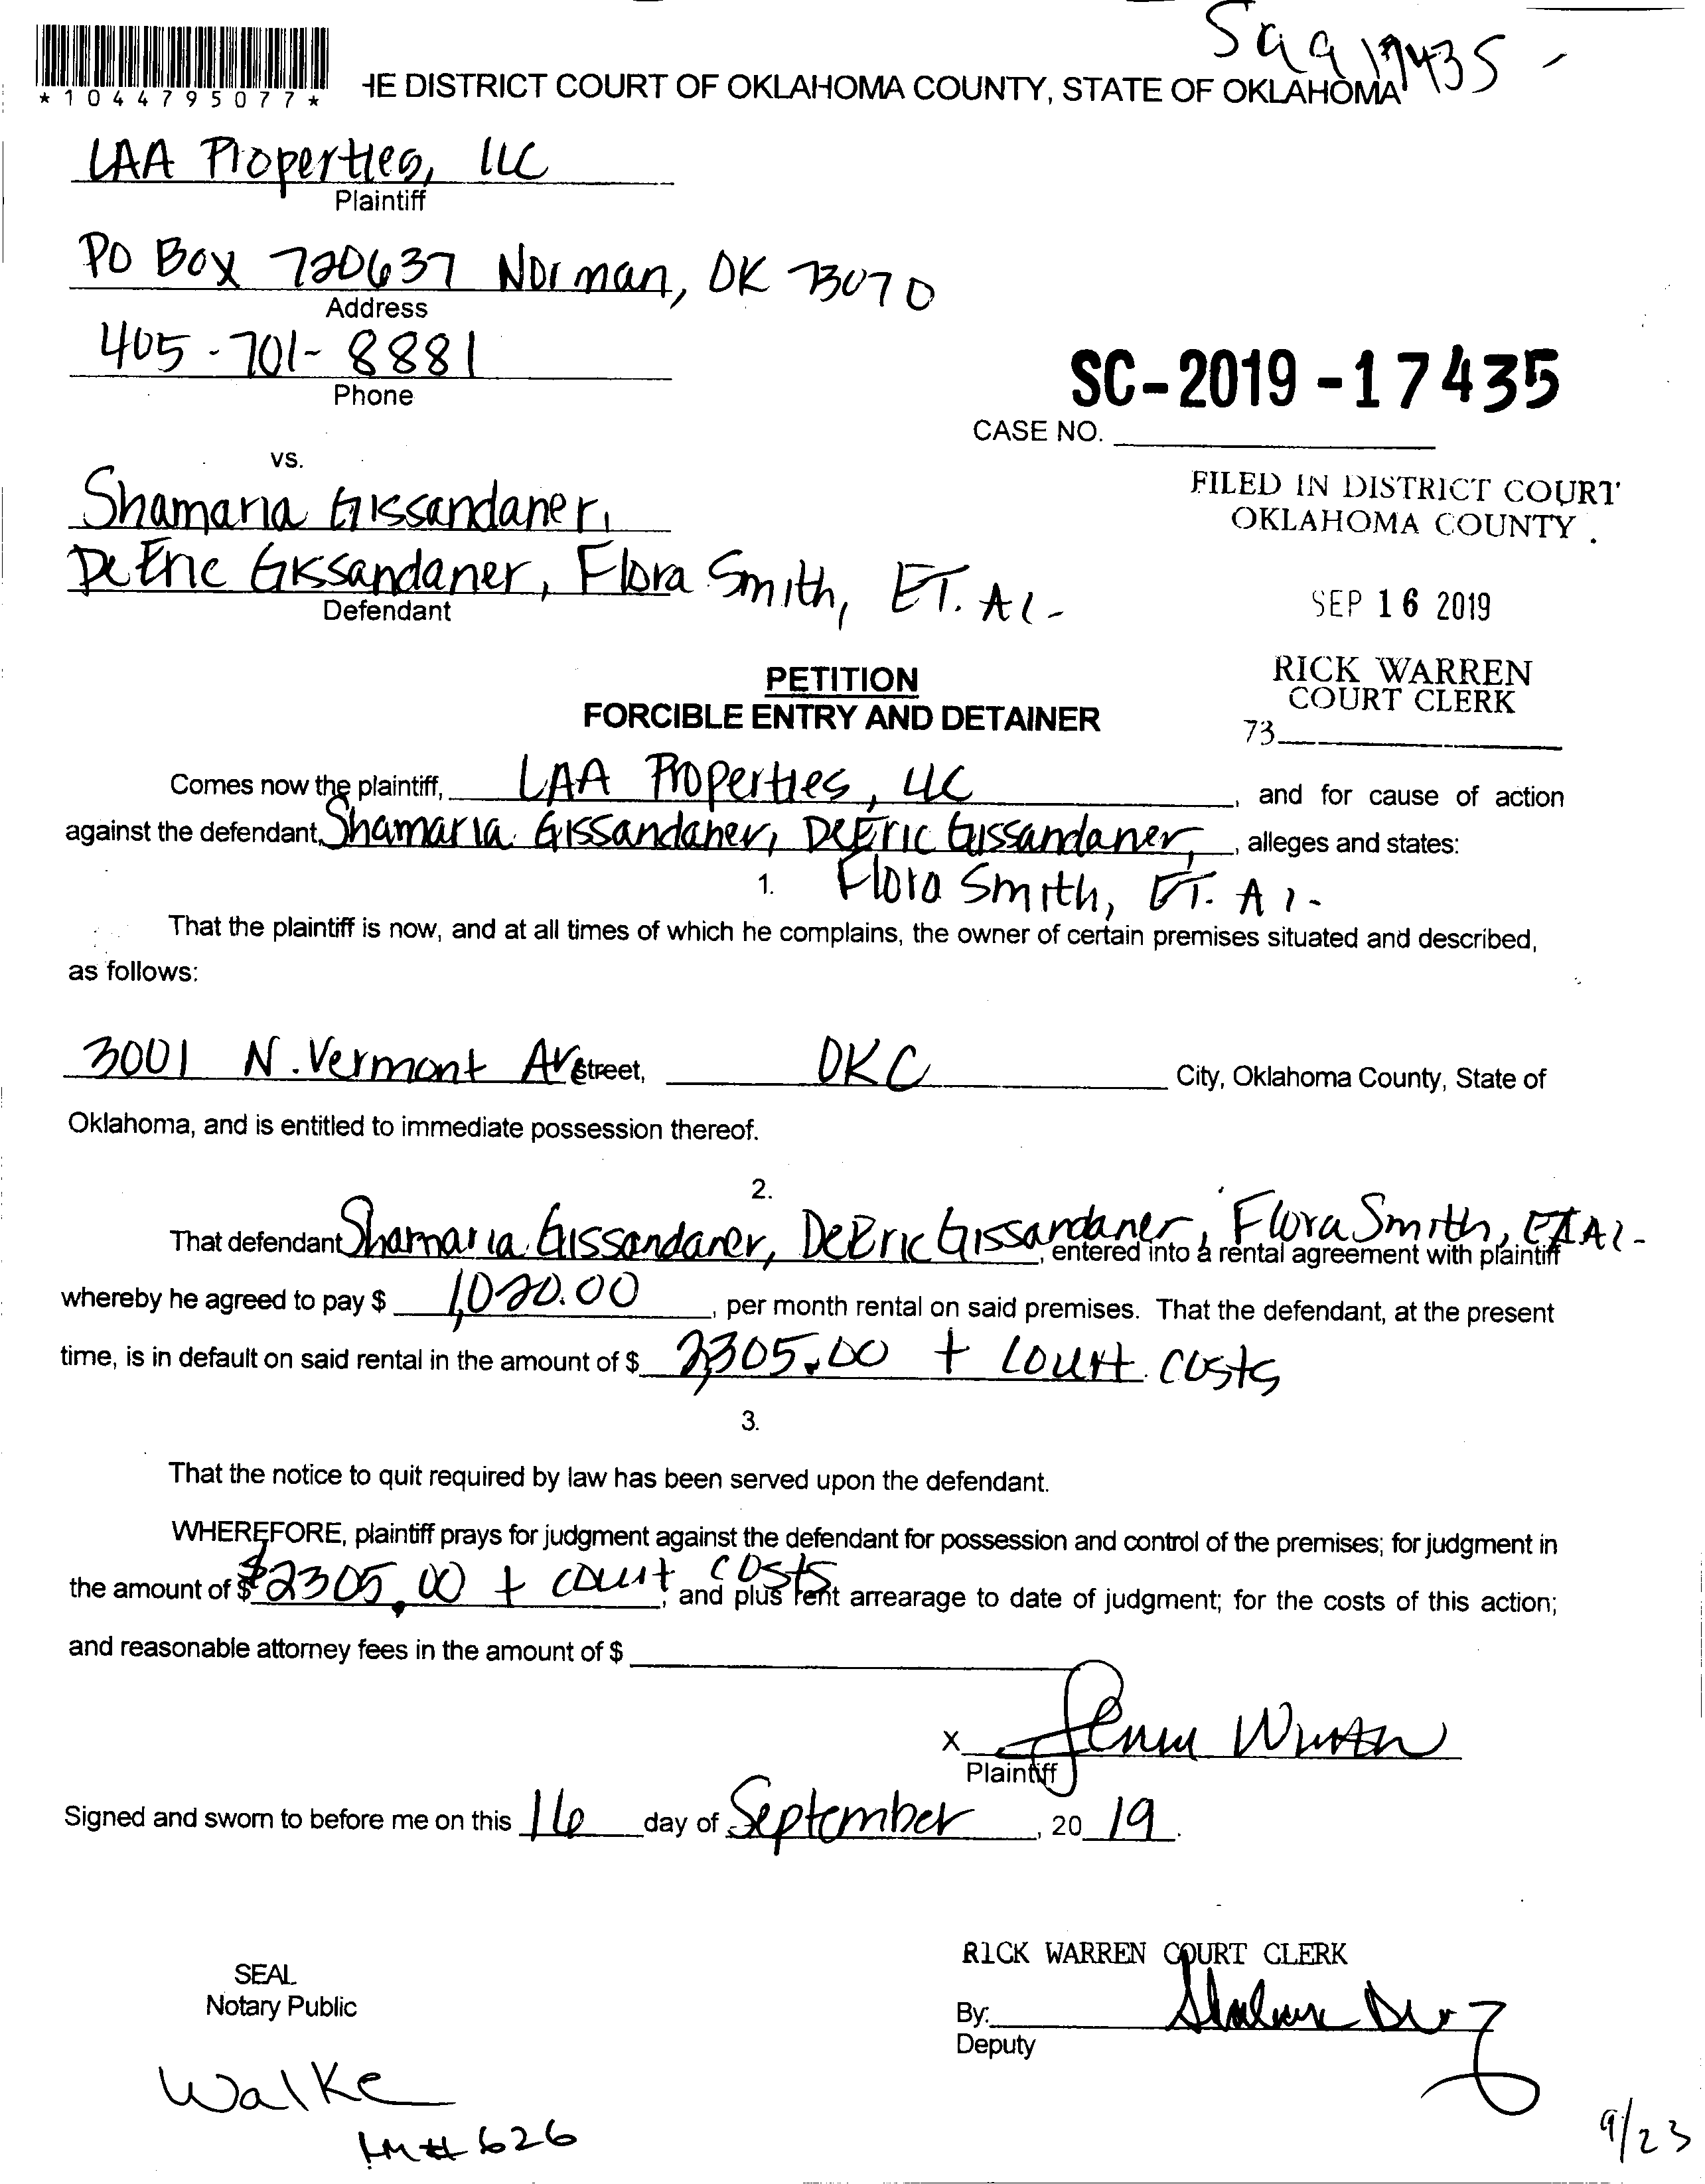 Sc1917435 -
*1044795077*
HE DISTRICT COURT OF OKLAHOMA COUNTY, STATE OF OKLAHOMA
LAA Properties, LLC
Plaintiff
PO Box 720637 Norman, OK 73070
Address
405-701-8881
Phone
SC-2019-17435
CASE NO.
vs.
Shamaria Gissandaner,
DeEric Gissandaner, Flora Smith, ET. Al-
Defendant
FILED IN DISTRICT COURT
OKLAHOMA COUNTY.
SEP 16 2019
RICK WARREN
COURT CLERK
73
PETITION
FORCIBLE ENTRY AND DETAINER
Comes now the plaintiff, LAA Properties, LLC, and for cause of action
against the defendant, Shamaria Gissandaner, DeEric Gissandaner, , alleges and states:
1. Flora Smith, ET. Al-
That the plaintiff is now, and at all times of which he complains, the owner of certain premises situated and described,
as follows:
3001 N. Vermont Ave Street, OKC City, Oklahoma County, State of
Oklahoma, and is entitled to immediate possession thereof.
2.
That defendant Shamaria Gissandaner, DeEric Gissandaner, Flora Smith, ET Al-, entered into a rental agreement with plaintiff
whereby he agreed to pay $ 1,020.00, per month rental on said premises. That the defendant, at the present
time, is in default on said rental in the amount of $ 2,305.00 + court costs
3.
That the notice to quit required by law has been served upon the defendant.
WHEREFORE, plaintiff prays for judgment against the defendant for possession and control of the premises; for judgment in
the amount of $ $2305.00 + court costs, and plus rent arrearage to date of judgment; for the costs of this action;
and reasonable attorney fees in the amount of $
x
Plaintiff
Signed and sworn to before me on this 16 day of September, 20 19.
SEAL
Notary Public
RICK WARREN COURT CLERK
By:
Deputy
Walke
626
9/23